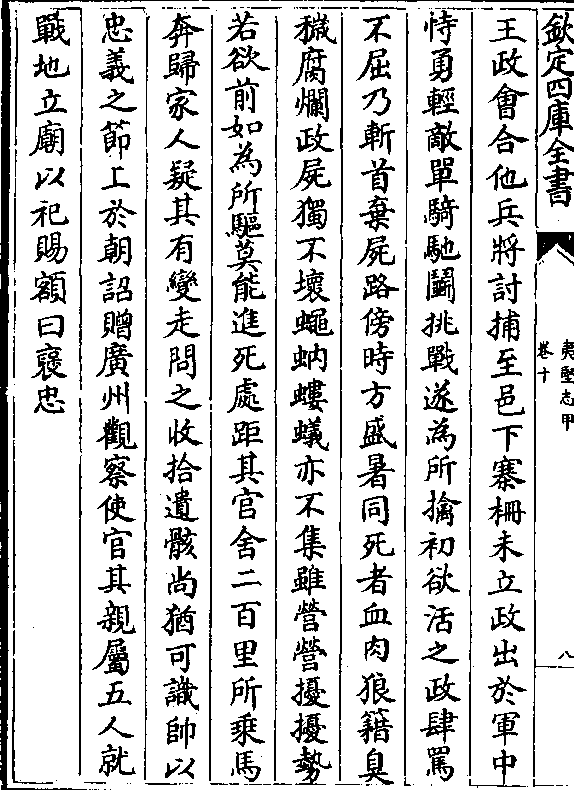 欽定四庫全書
夷堅志甲
卷十
八
王政會合他兵將討捕至邑下寨柵未立政出於軍中
恃勇輕敵單騎馳鬬挑戰遂為所擒初欲活之政肆罵
不屈乃斬首棄屍路傍時方盛暑同死者血肉狼籍臭
穢腐爛政屍獨不壞蠅蚋螻蟻亦不集雖營營擾擾勢
若欲前如為所驅莫能進死處距其官舍二百里所乘馬
奔歸家人疑其有變走問之收拾遺骸尚猶可識帥以
忠義之節上於朝詔贈廣州觀察使官其親屬五人就
戰地立廟以祀賜額曰裦忠